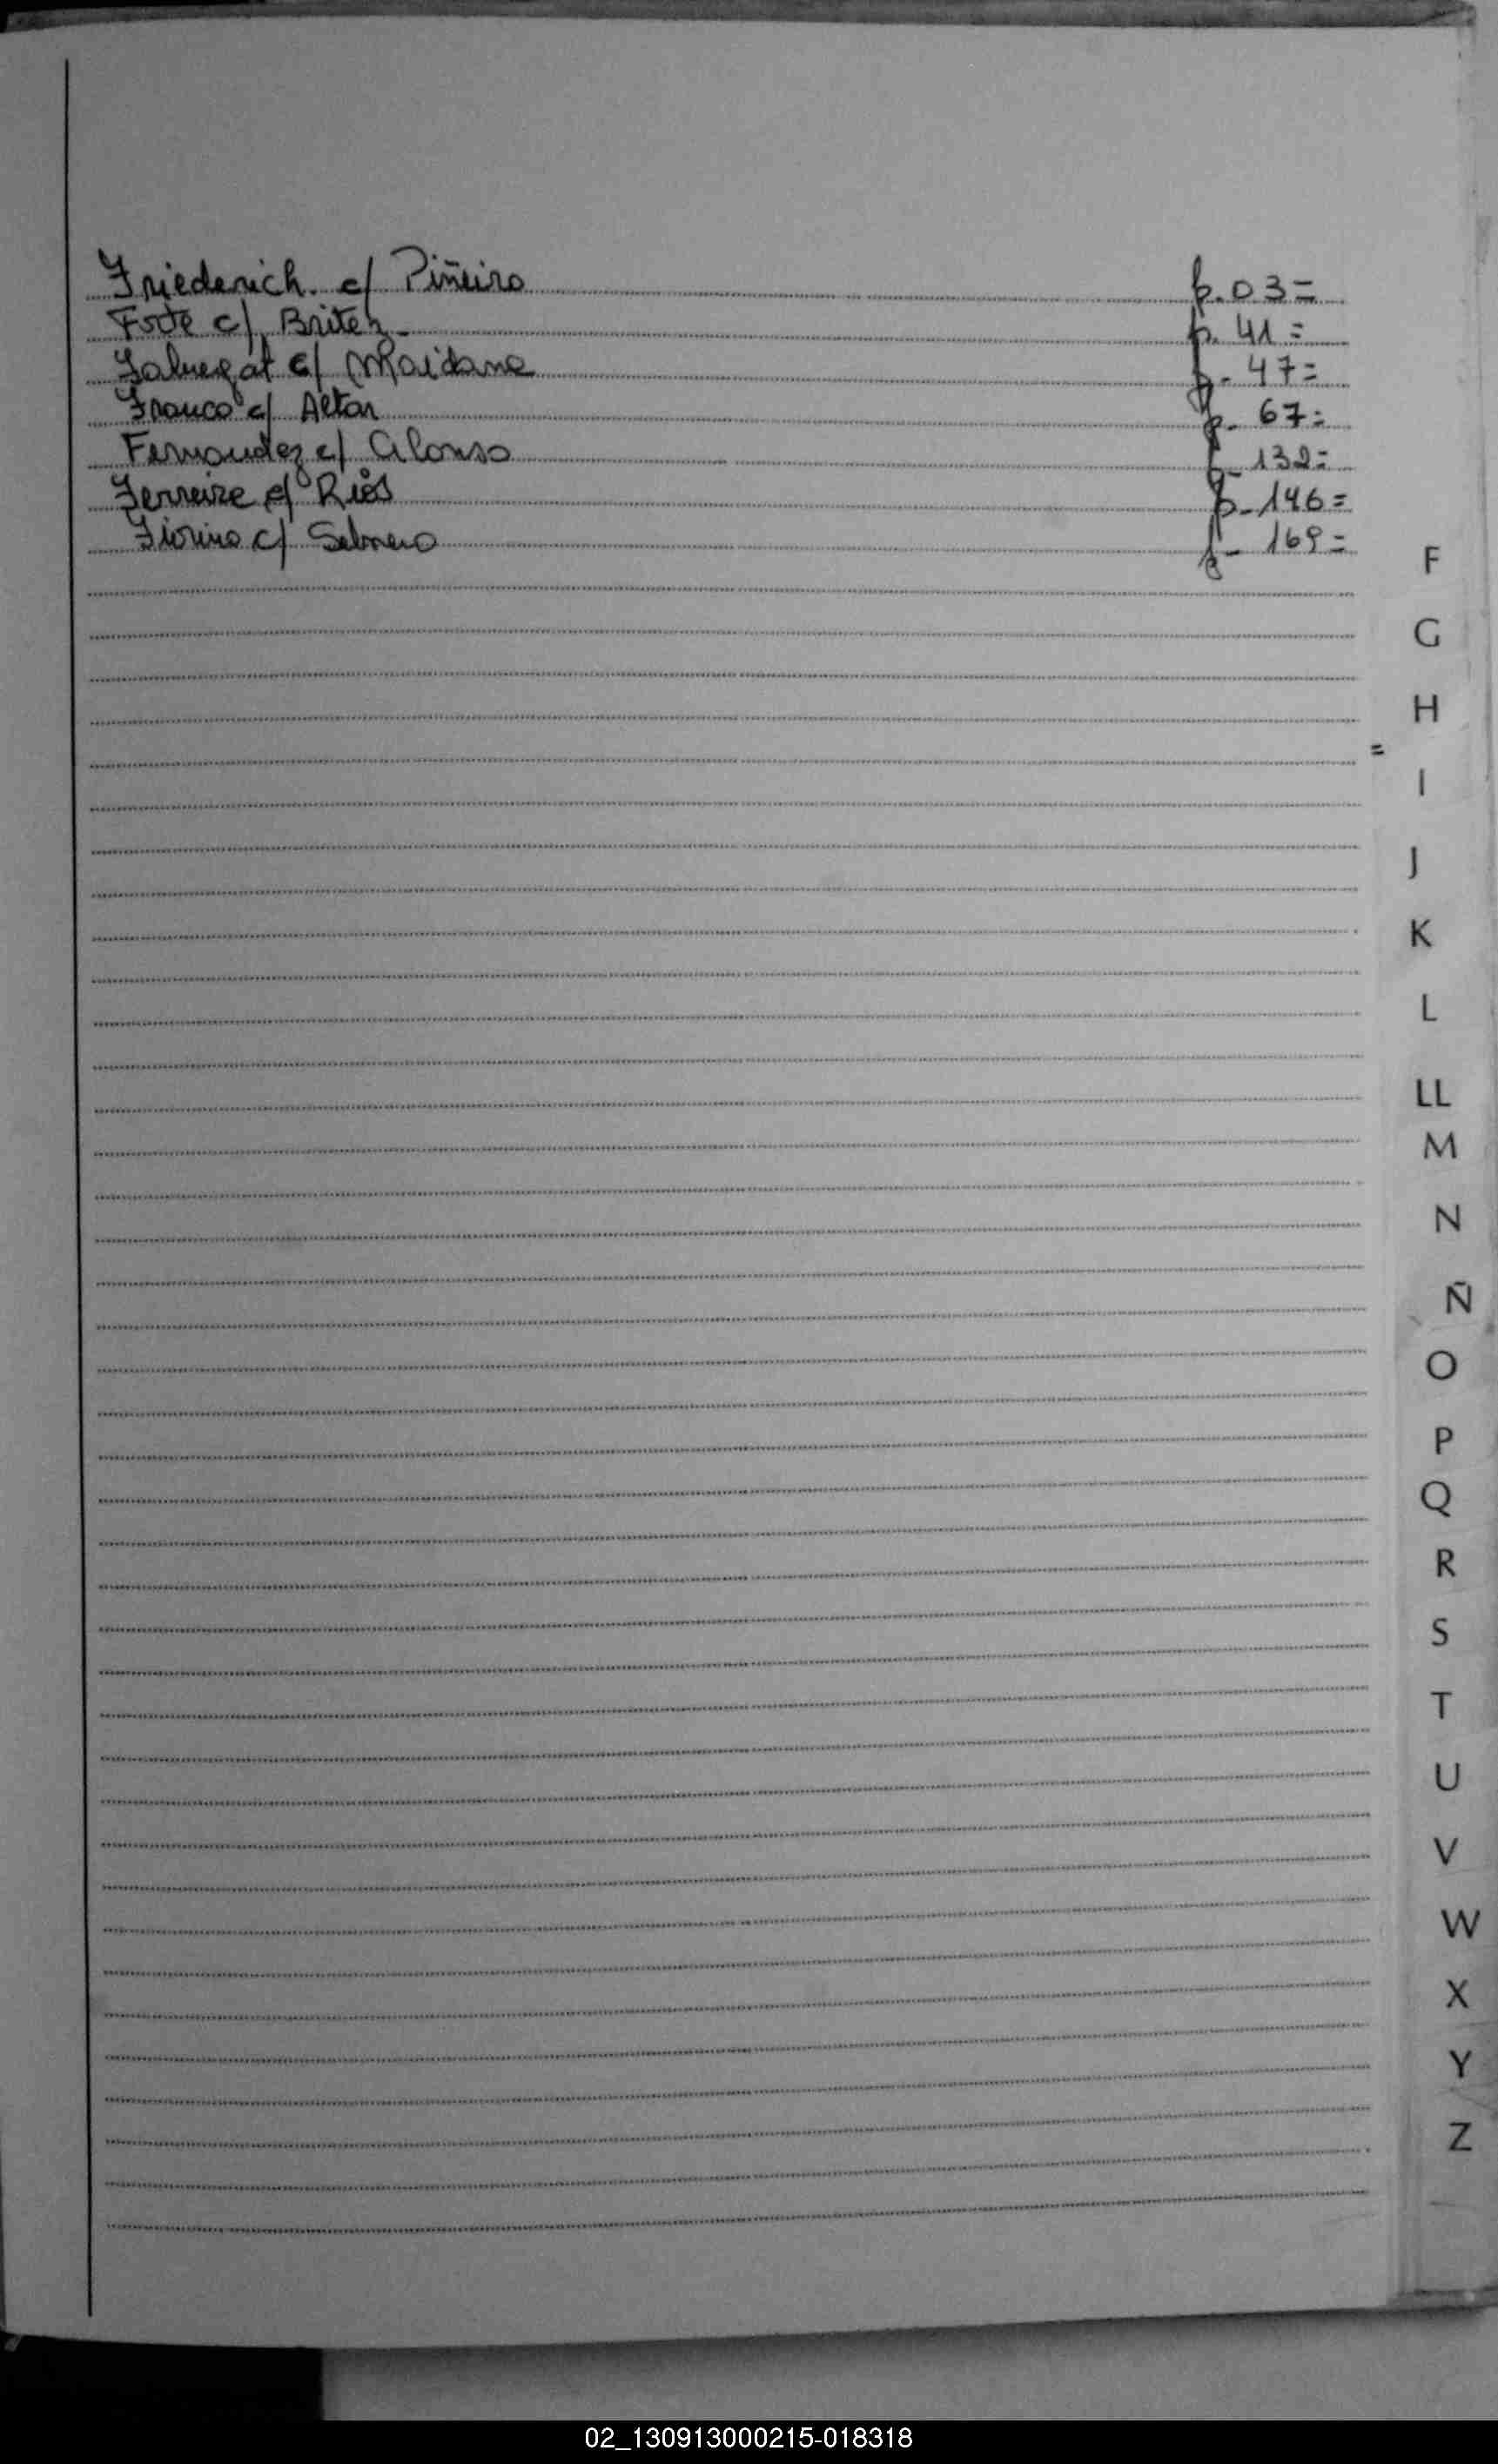 Friederich. c/ Piñeiro p. 03=
Forte c/ Britez- p. 41=
Fabregat c/ Maidana p- 47=
Franco c/ Altar p- 67=
Fernandez c/ Alonso p- 132=
Ferreira c/ Rios p- 146=
Fiorino c/ p- 169=
F
G
H
=
I
J
K
L
LL
M
N
Ñ
O
P
Q
R
S
T
U
V
W
X
Y
Z
02_130913000215-018318